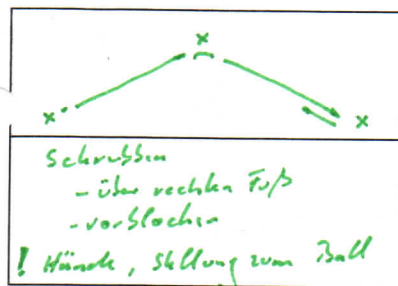 Schrubben
- über rechten Fuß
- vorblocken
! Hände, Stellung zum Ball